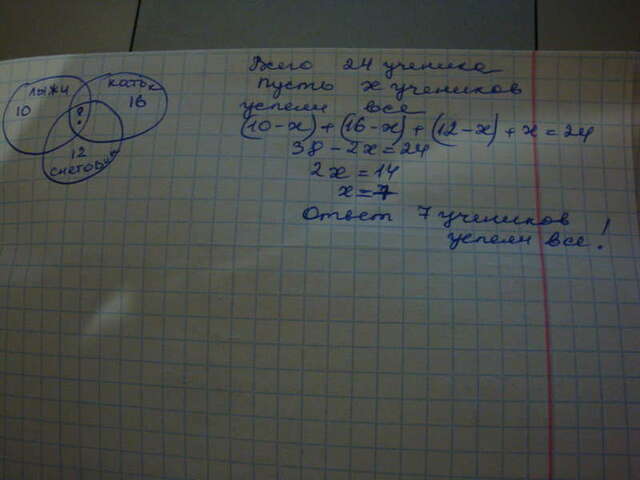 лыжи
10
каток
16
?
12
снеговик
Всего 24 ученика
Пусть х учеников
успели все
(10-х)+(16-х)+(12-х)+х=24
38-2х=24
2х=14
х=7
Ответ 7 учеников
успели все!